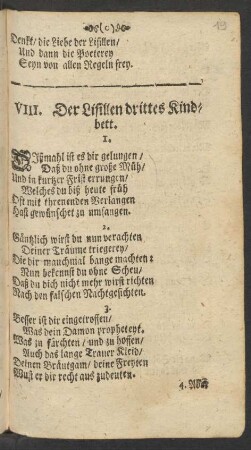 19
Denkt/ die Liebe der Lisillen/
Und dann die Poeterey
Seyn von allen Regeln frey.
VIII. Der Lisillen drittes Kind-
bett.
1.
Dißmahl ist es dir gelungen/
Daß du ohne große Müh/
Und in kurtzer Frist errungen/
Welches du biß heute früh
Oft mit threnenden Verlangen
Hast gewünschet zu umfangen.
2.
Gäntzlich wirst du nun verachten
Deiner Träume triegerey/
Die dir manchmal bange machten:
Nun bekennst du ohne Scheu/
Daß du dich nicht mehr wirst richten
Nach den falschen Nachtgesichten.
3.
Besser ist dir eingetroffen/
Was dein Damon propheteyt.
Was zu fürchten/ und zu hoffen/
Auch das lange Trauer Kleid/
Deinen Bräutgam/ deine Freyten
Wust er dir recht aus zudeuten.
4. Noch